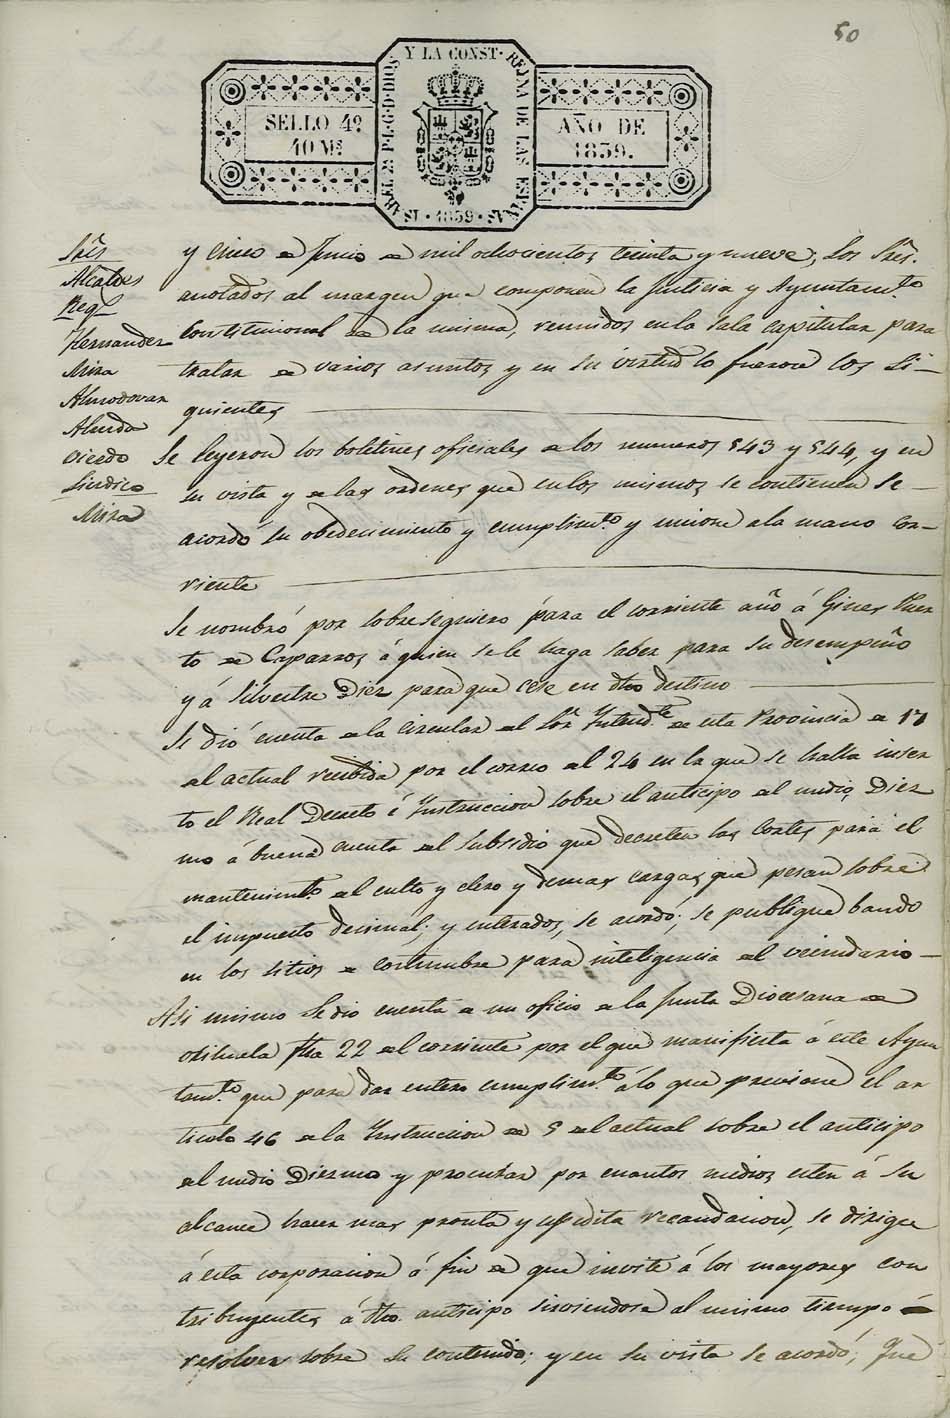 50
Y LA CONST· REYNA DE LAS ESPAÑAS · 1839 · ISABEL 2ª P·L·G·D·DIOS
SELLO 4º
40 Mˢ
AÑO DE
1839.
Sres
Alcaldes
Regs
Hernandez
Mira
Almodovar
Alerda
Oiendo
Sindico
Mira
y cinco de Junio de mil ochocientos treinta y nueve, los Sres.
anotados al margen que componen la Justicia y Ayuntamto
Constitucional de la misma, reunidos en la sala capitular para
tratar de varios asuntos y en su virtud lo fueron los si-
guientes
Se leyeron los boletines oficiales de los numeros 543 y 544, y en
su vista y de las ordenes que en los mismos se contienen se
acordó su obedecimiento y cumplimto y unirse a la mano cor-
riente
Se nombró por sobreseguiero para el corriente año á Gines Puer
to de Caparros á quien se le haga saber para su desempeño
y á Silvestre Diez para que cese en dho destino
Se dió cuenta de la circular del Sor Yntendte de esta Provincia de 17
del actual recibida por el correo del 24 en la que se halla inser
to el Real Decreto é Ynstruccion sobre el anticipo del medio Diez
mo á buena cuenta del subsidio que decreten las Cortes para el
mantenimto del culto y clero y demas cargas que pesan sobre
el impuesto decimal; y enterados, se acordó; se publique bando
en los sitios de costumbre para inteligencia del vecindario
Asi mismo se dio cuenta de un oficio de la Junta Diocesana de
Orihuela fha 22 del corriente por el que manifiesta á este Ayun
tamto que para dar entero cumplimto á lo que previene el ar
ticulo 46 de la Ynstruccion de 5 del actual sobre el anticipo
del medio Diezmo y procurar por cuantos medios esten á su
alcance hacer mas pronta y espedita recaudacion, se dirige
á esta corporacion á fin de que invite á los mayores con
tribuyentes á dho anticipo sirviendose al mismo tiempo
resolver sobre su contenido; y en su vista se acordó; Que